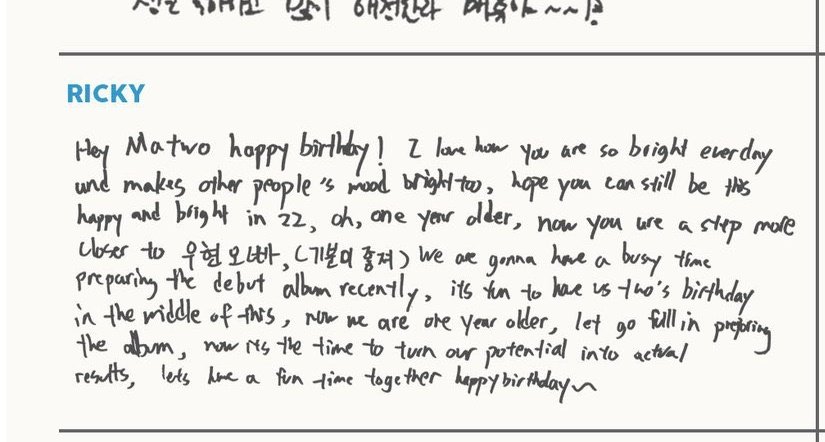 RICKY
Hey Matwo happy birthday! I love how you are so bright everday
and makes other people's mood bright too, hope you can still be this
happy and bright in 22, oh, one year older, now you are a step more
closer to 우현 오빠, (기분이 좋져) We are gonna have a busy time
preparing the debut album recently, its fun to have us two's birthday
in the middle of this, now we are one year older, let go full in preparing
the album, now its the time to turn our potential into actual
results, lets have a fun time together happy birthday~